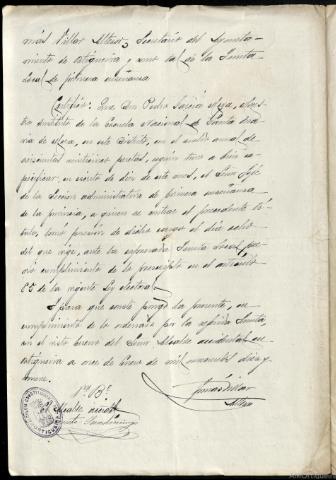 más Villar Alteso, Secretario del Ayunta-
miento de Ortigueira, y como tal de la Junta
local de primera enseñanza
Certifico: Que Don Pedro García Mera, Maes-
tro sustituto de la Escuela Nacional de Santa Ma-
ría de Mera, en este Distrito, con el sueldo anual de
seiscientas veinticinco pesetas, según tuvo a bien ex-
pedirle, en siete de de este año, el Señor Jefe
de la Sección administrativa de primera enseñanza
de la provincia, a quien se entrega el precedente tí-
tulo, tomó posesión de dicho cargo el día ocho
del que rige, ante la expresada Junta local, pre-
vio cumplimiento de lo prescripto en el artículo
85 de la vigente Ley electoral.
Y para que conste pongo la presente, en
cumplimiento de lo ordenado por la referida Junta,
con el visto bueno del Señor Alcalde accidental en
Ortigueira a once de Enero de mil novecientos diez y
nueve.
Vº Bº
El Alcalde accidtal
Tomás Villar
Alteso